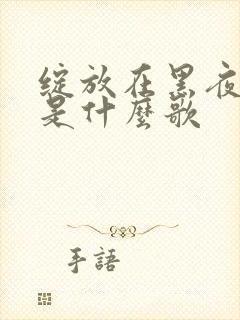 綻放在黑夜
是什麼歌
手語